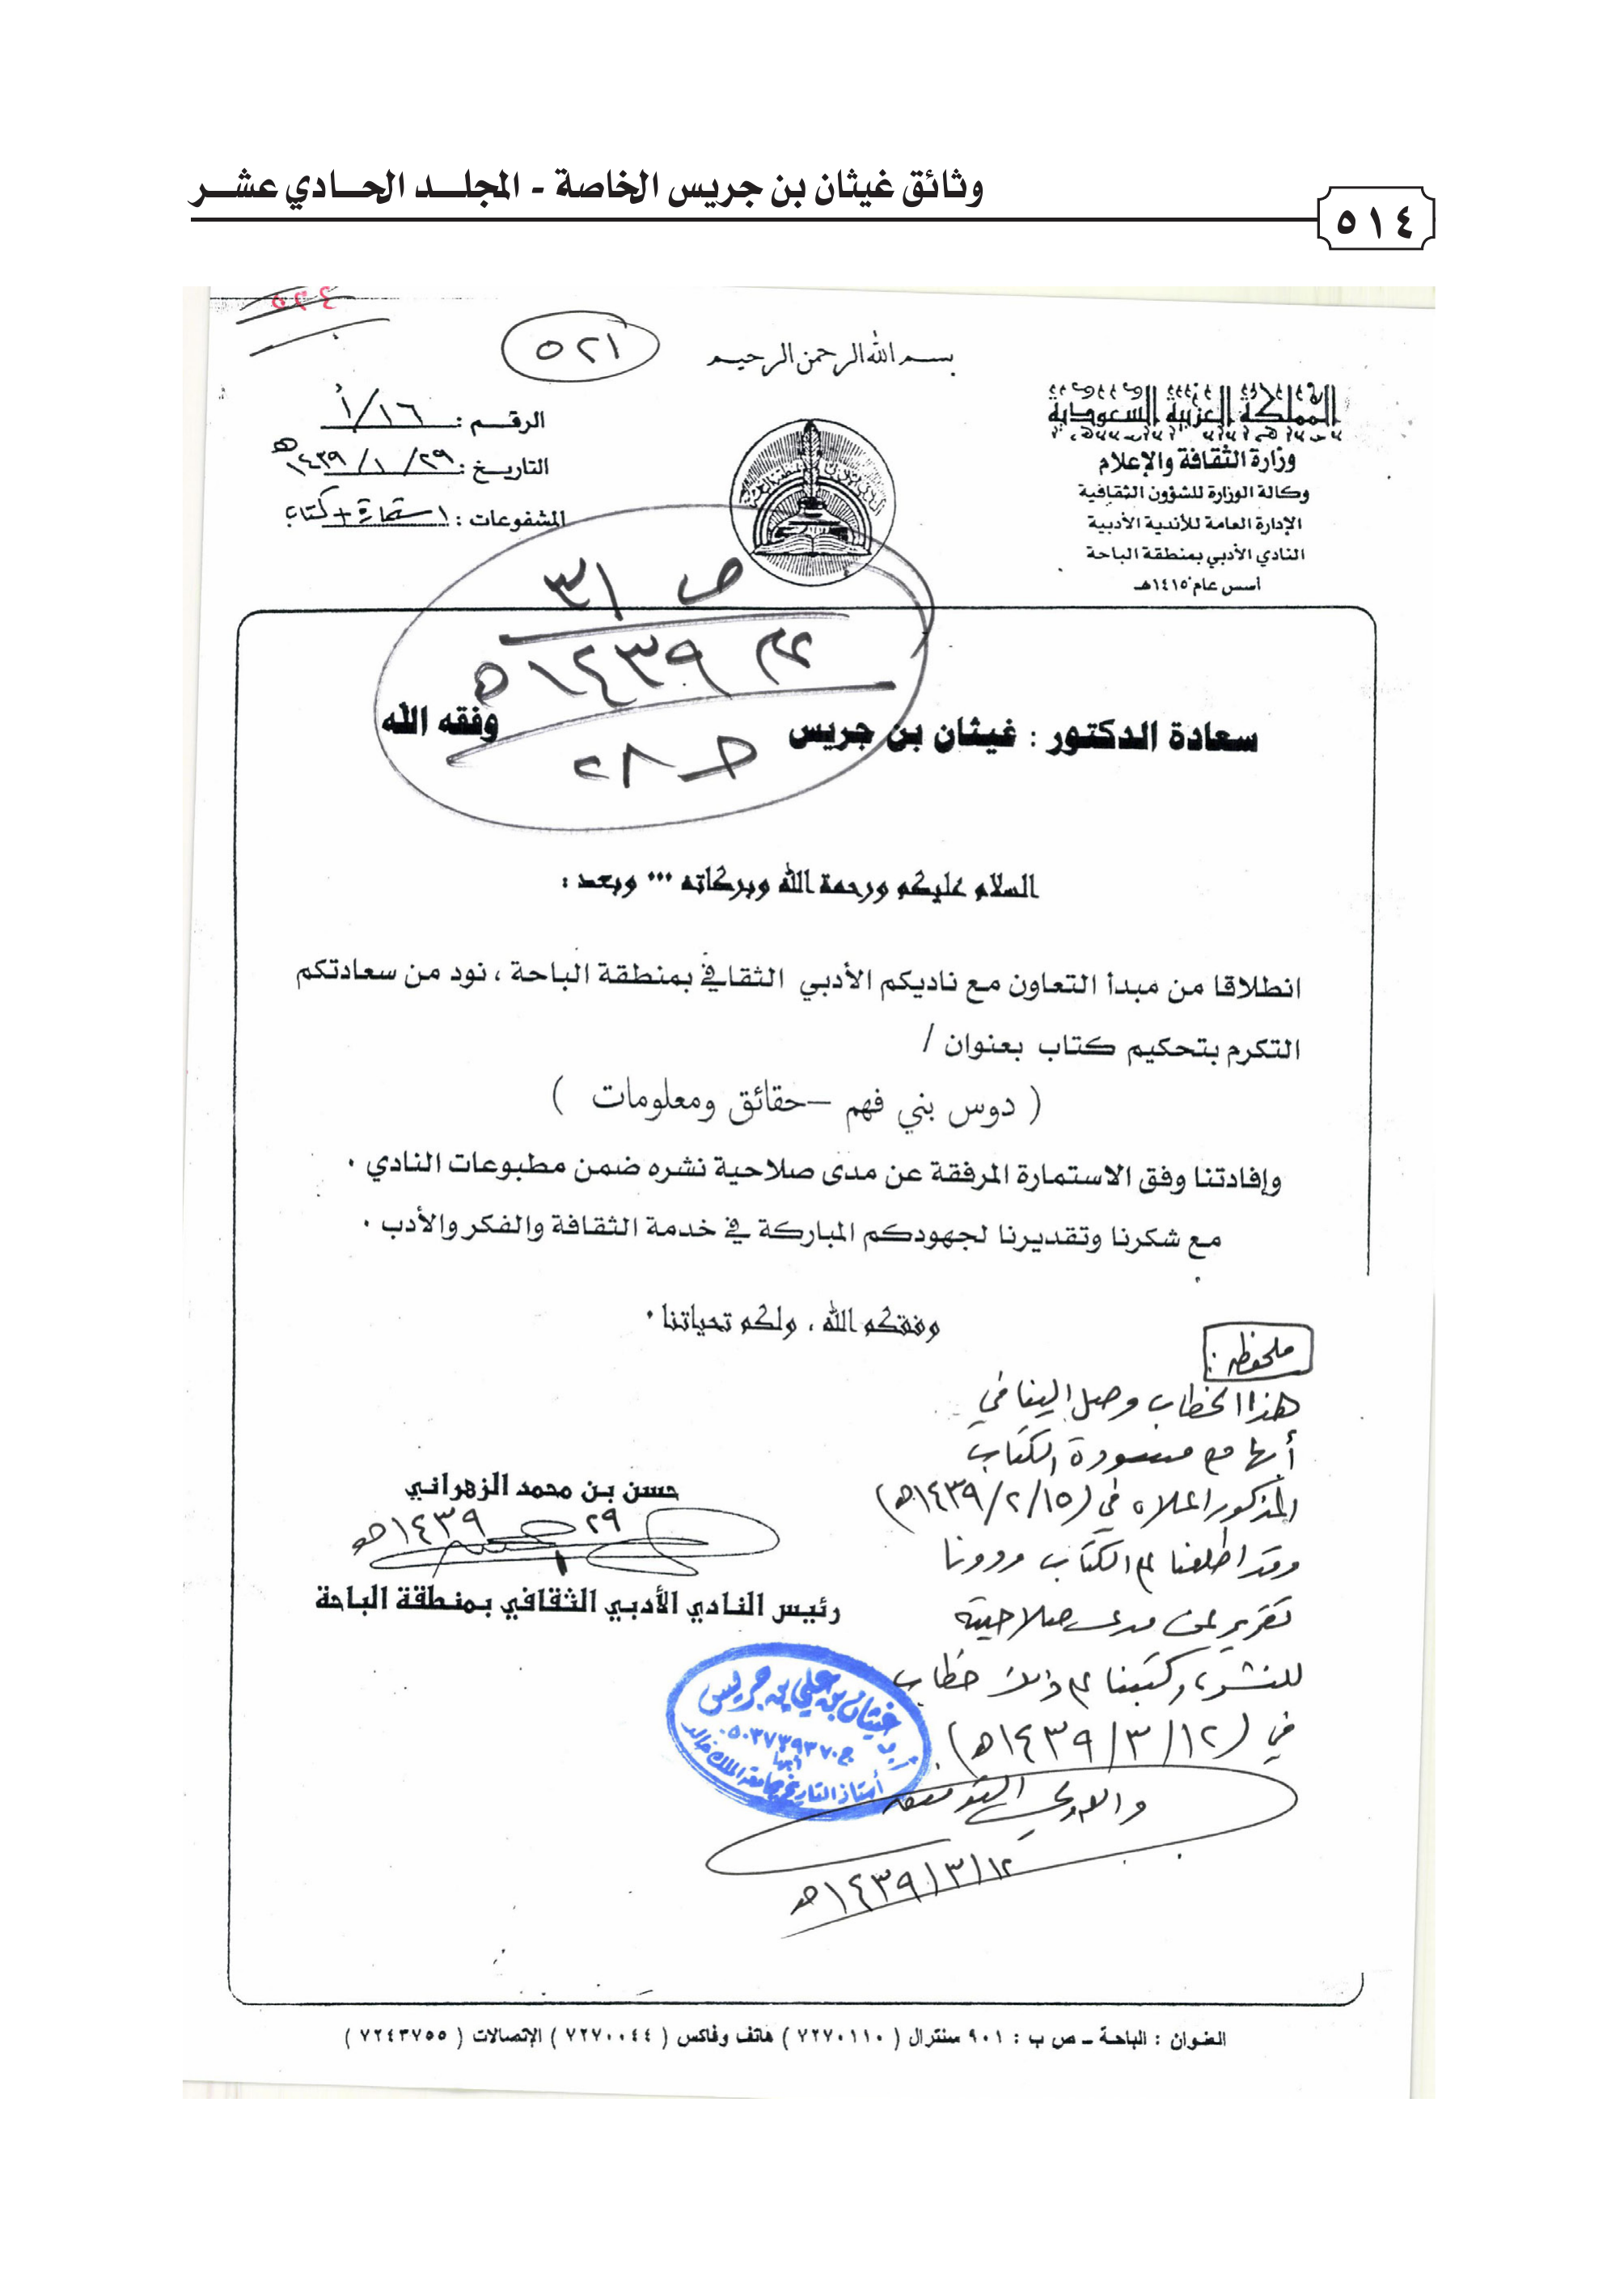 وثائق غيثان بن جريس الخاصة - المجلد الحادي عشر
٥١٤
٥٢١
بسم الله الرحمن الرحيم
المملكة العربية السعودية
وزارة الثقافة والإعلام
وكالة الوزارة للشؤون الثقافية
الإدارة العامة للأندية الأدبية
النادي الأدبي بمنطقة الباحة
أسس عام ١٤١٥هـ
الرقم : ١٦/أ
التاريخ : ٢٩/١/١٤٣٩هـ
المشفوعات : ١ستمارة + كتاب
ص ٣١
١٤٣٩هـ
٢٨
سعادة الدكتور : غيثان بن جريس وفقه الله
السلام عليكم ورحمة الله وبركاته ... وبعد :
انطلاقا من مبدأ التعاون مع ناديكم الأدبي الثقافي بمنطقة الباحة ، نود من سعادتكم
التكرم بتحكيم كتاب بعنوان /
( دوس بني فهم –حقائق ومعلومات )
وإفادتنا وفق الاستمارة المرفقة عن مدى صلاحية نشره ضمن مطبوعات النادي .
مع شكرنا وتقديرنا لجهودكم المباركة في خدمة الثقافة والفكر والأدب .
وفقكم الله ، ولكم تحياتنا .
حسن بن محمد الزهراني
٢٩ ١٤٣٩هـ
رئيس النادي الأدبي الثقافي بمنطقة الباحة
ملحوظة :
هذا الخطاب وصل إلينا في
أبها مع مسودة الكتاب
المذكور اعلاه في (١٥/٢/١٤٣٩هـ)
وقد اطلعنا الكتاب ودونا
تقرير عن مدى صلاحيته
للنشر، وكتبنا ذلك خطاب
في (١٢/٣/١٤٣٩هـ).
والله ولي التوفيق
١٢/٣/١٤٣٩هـ
أ.د غيثان بن علي بن جريس
ج ٠٥٠٣٧٣٩٣٧٠
أبها
أستاذ التاريخ جامعة الملك خالد
العنوان : الباحة – ص ب : ٩٠١ سنترال ( ٧٢٧٠١١٠ ) هاتف وفاكس ( ٧٢٧٠٠٤٤ ) الإتصالات ( ٧٢٤٣٧٥٥ )